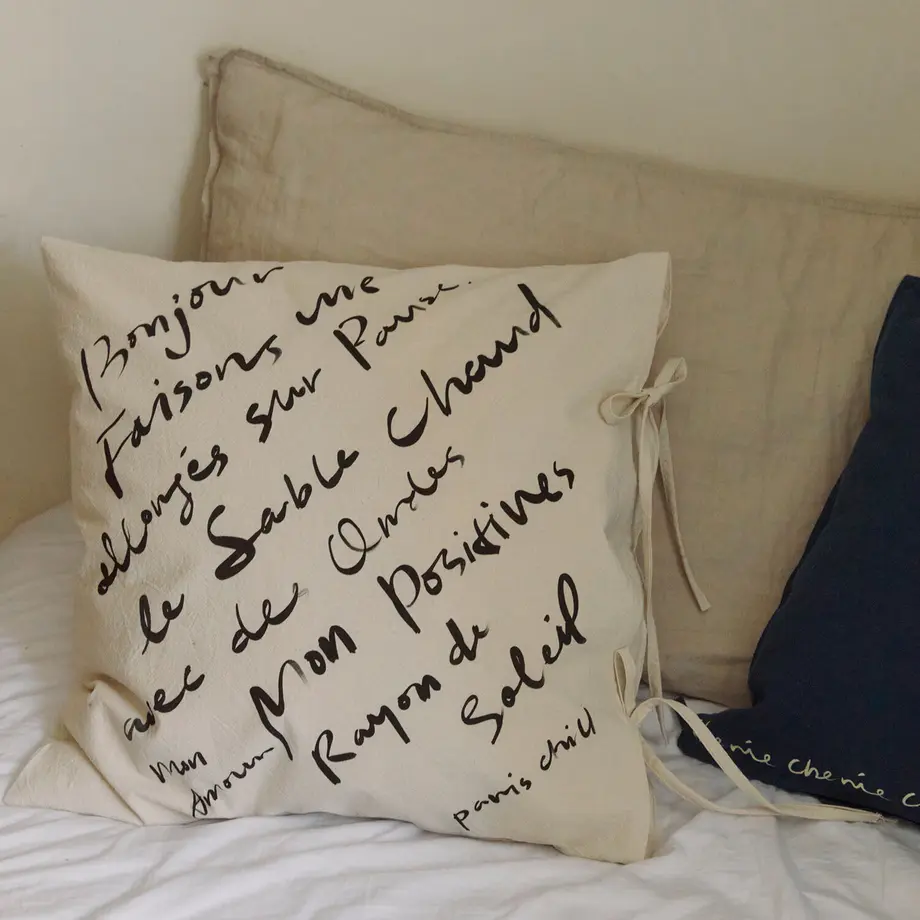 Bonjour
Faisons une
allongés sur Pause.
le Sable Chaud
avec des Ondes
Mon Positives
Rayon de
Soleil
Mon
Amour
paris chill
cherie